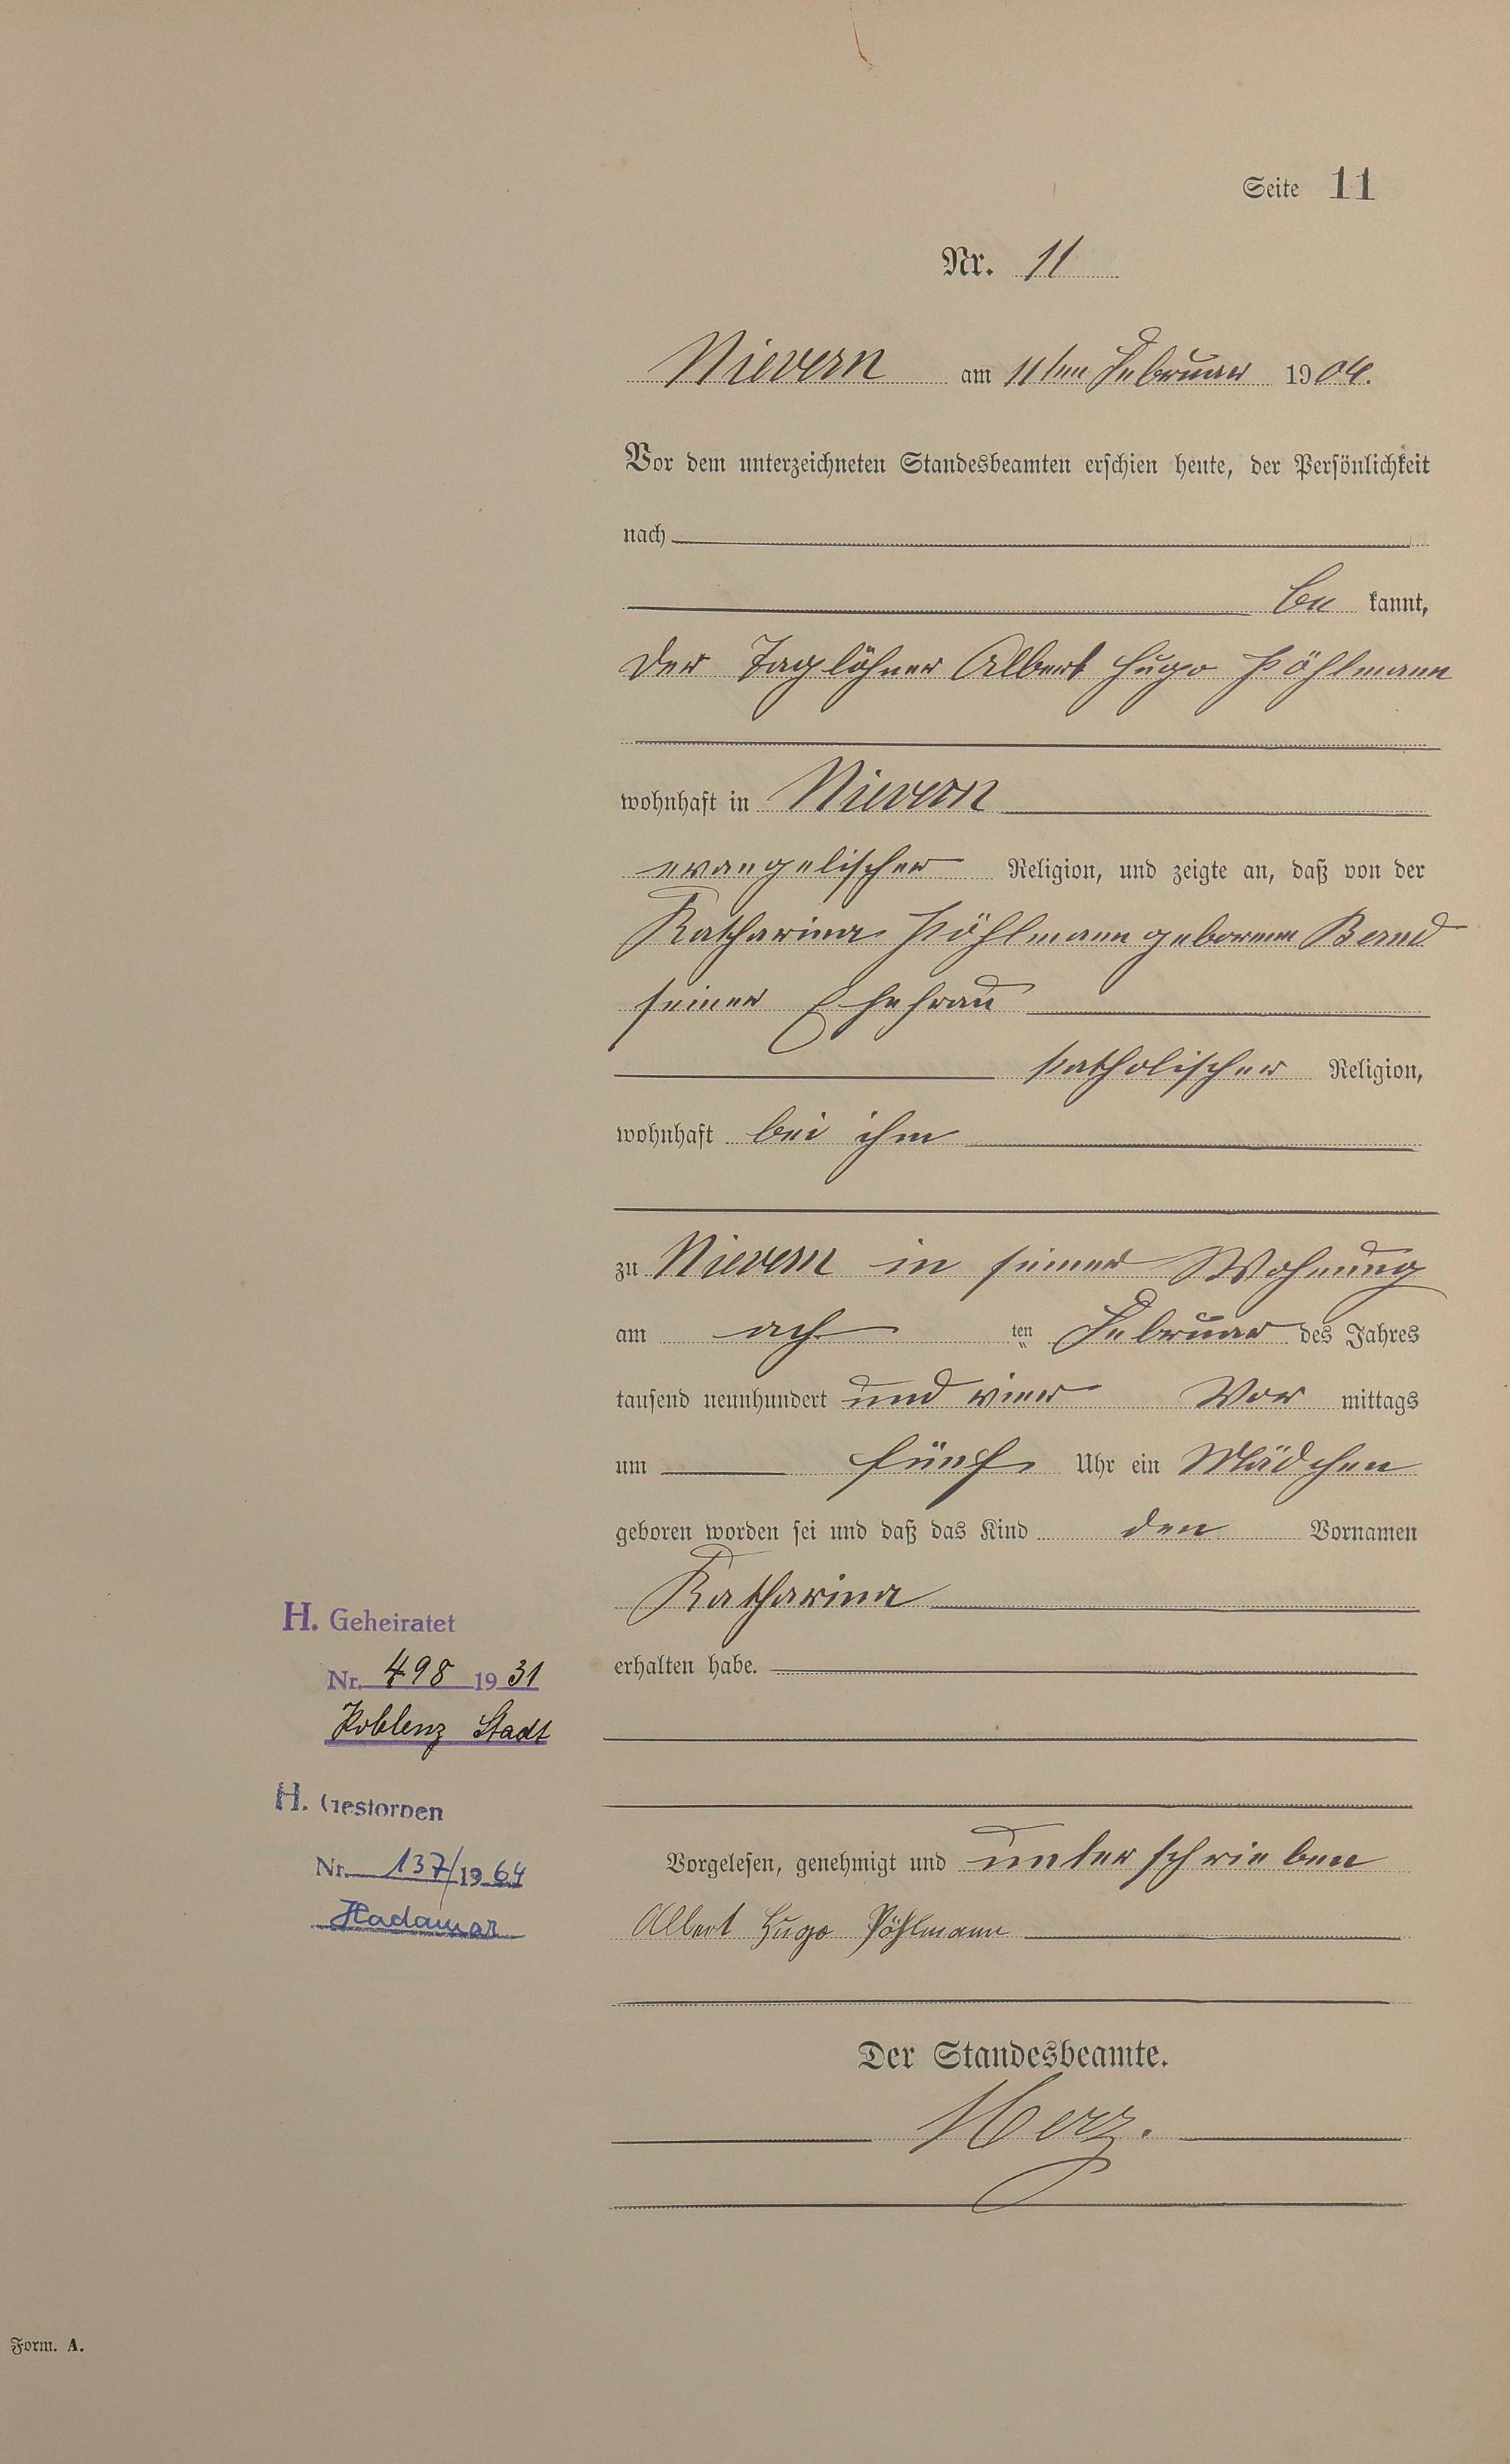 Seite 11
Nr. 11
Nievern am 11ten Februar 1904.
Vor dem unterzeichneten Standesbeamten erschien heute, der Persönlichkeit
nach
be kannt,
der Taglöhner Albert Hugo Pöhlmann
wohnhaft in Nievern
evangelischer Religion, und zeigte an, daß von der
Katharina Pöhlmann geborenen Bernd
seiner Ehefrau
katholischer Religion,
wohnhaft bei ihm
zu Nievern in seiner Wohnung
am ach ten Februar des Jahres
tausend neunhundert und vier Vor mittags
um fünf Uhr ein Mädchen
geboren worden sei und daß das Kind den Vornamen
Katharina
erhalten habe.
H. Geheiratet
Nr. 498 1931
Koblenz Stadt
H. Gestorben
Nr. 137/1964
Hadamar
Vorgelesen, genehmigt und unterschrieben
Albert Hugo Pöhlmann
Der Standesbeamte.
Herz.
Form. A.